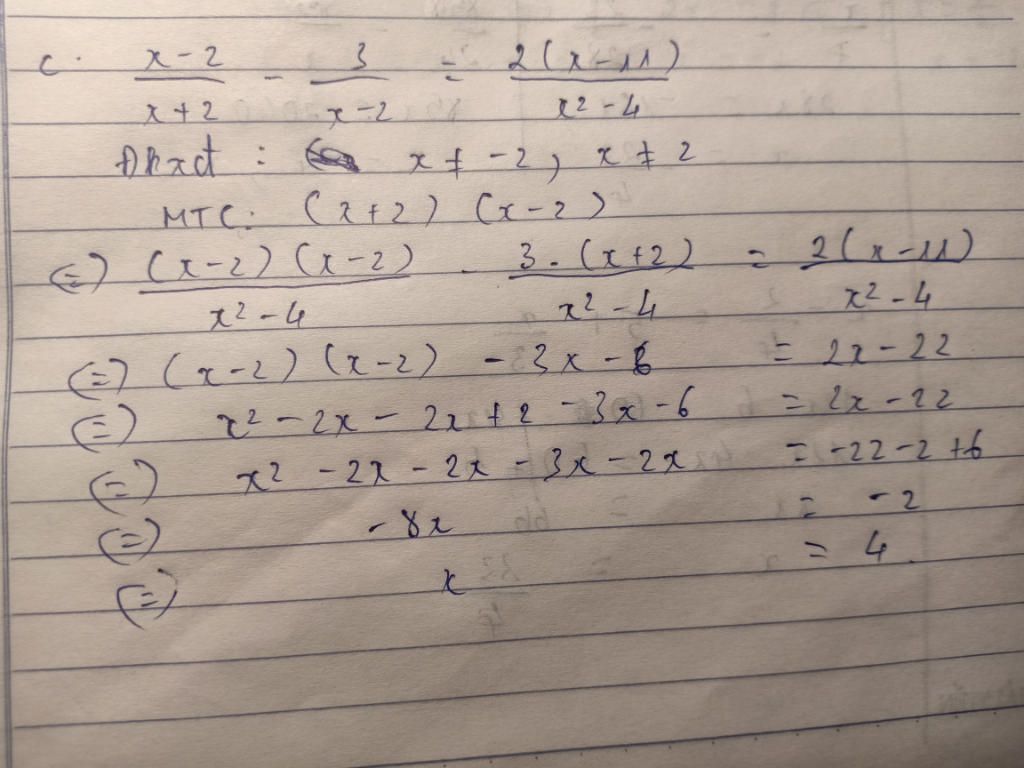 c. (x-2)/(x+2) - 3/(x-2) = 2(x-11)/(x²-4)
Đkxđ : x ≠ -2, x ≠ 2
MTC: (x+2) (x-2)
(=) (x-2)(x-2)/(x²-4) - 3.(x+2)/(x²-4) = 2(x-11)/(x²-4)
(=) (x-2)(x-2) - 3x - 6 = 2x - 22
(=) x² - 2x - 2x + 2 - 3x - 6 = 2x - 22
(=) x² - 2x - 2x - 3x - 2x = -22 - 2 + 6
(=) -8x = -2
(=) x = 4